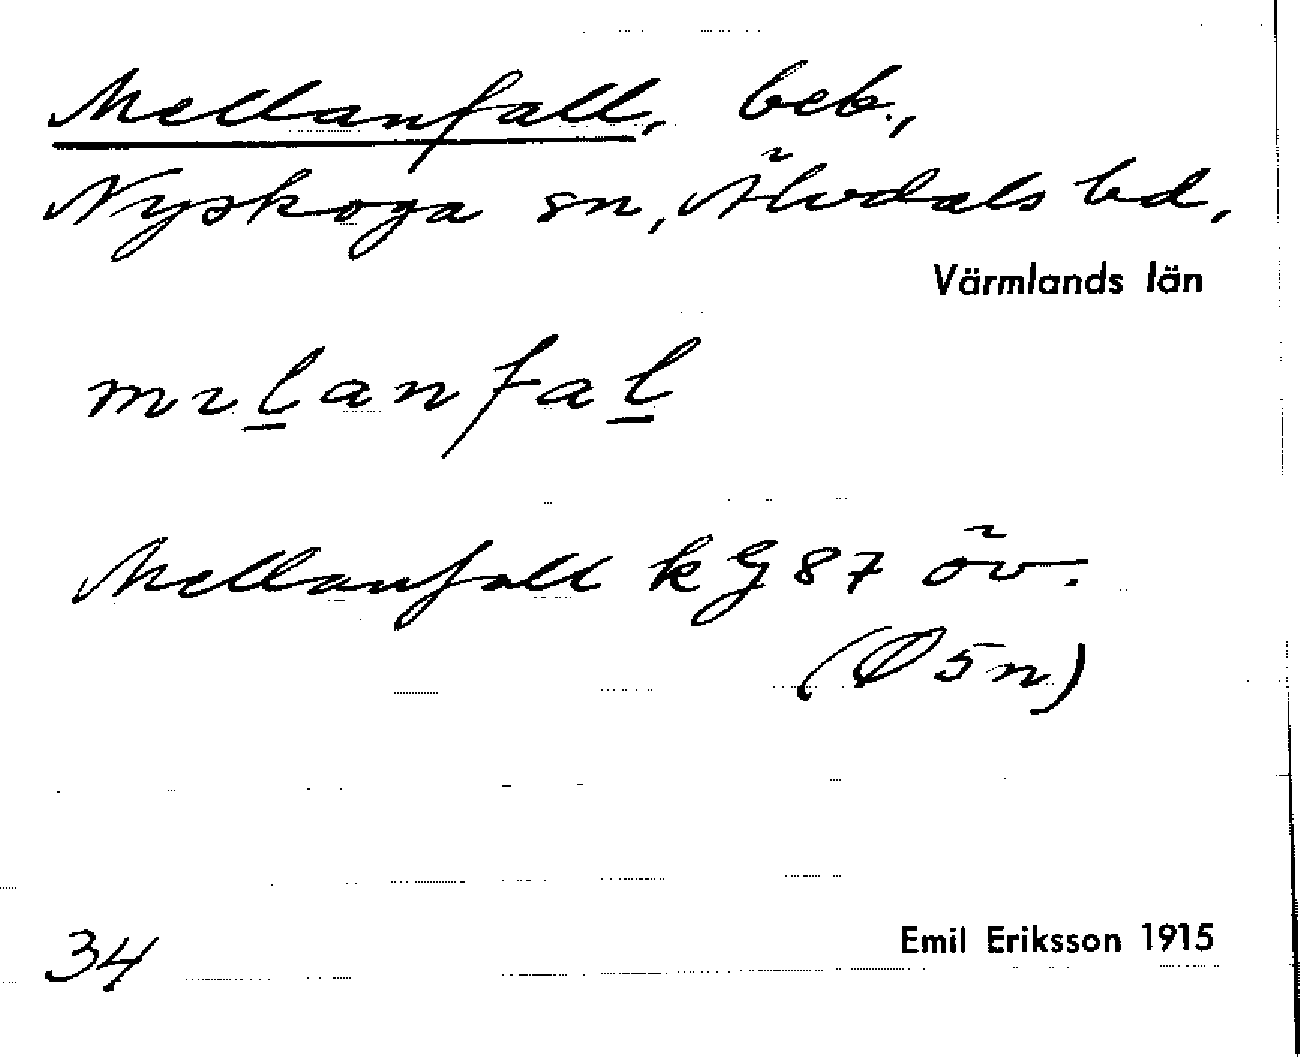 Mellanfall, beb.,
Nyskoga sn, Älvdals hd,
Värmlands län
mɪl̲anfal̲
Mellanfall k G 87 öv.
(Ø 5 n)
34
Emil Eriksson 1915